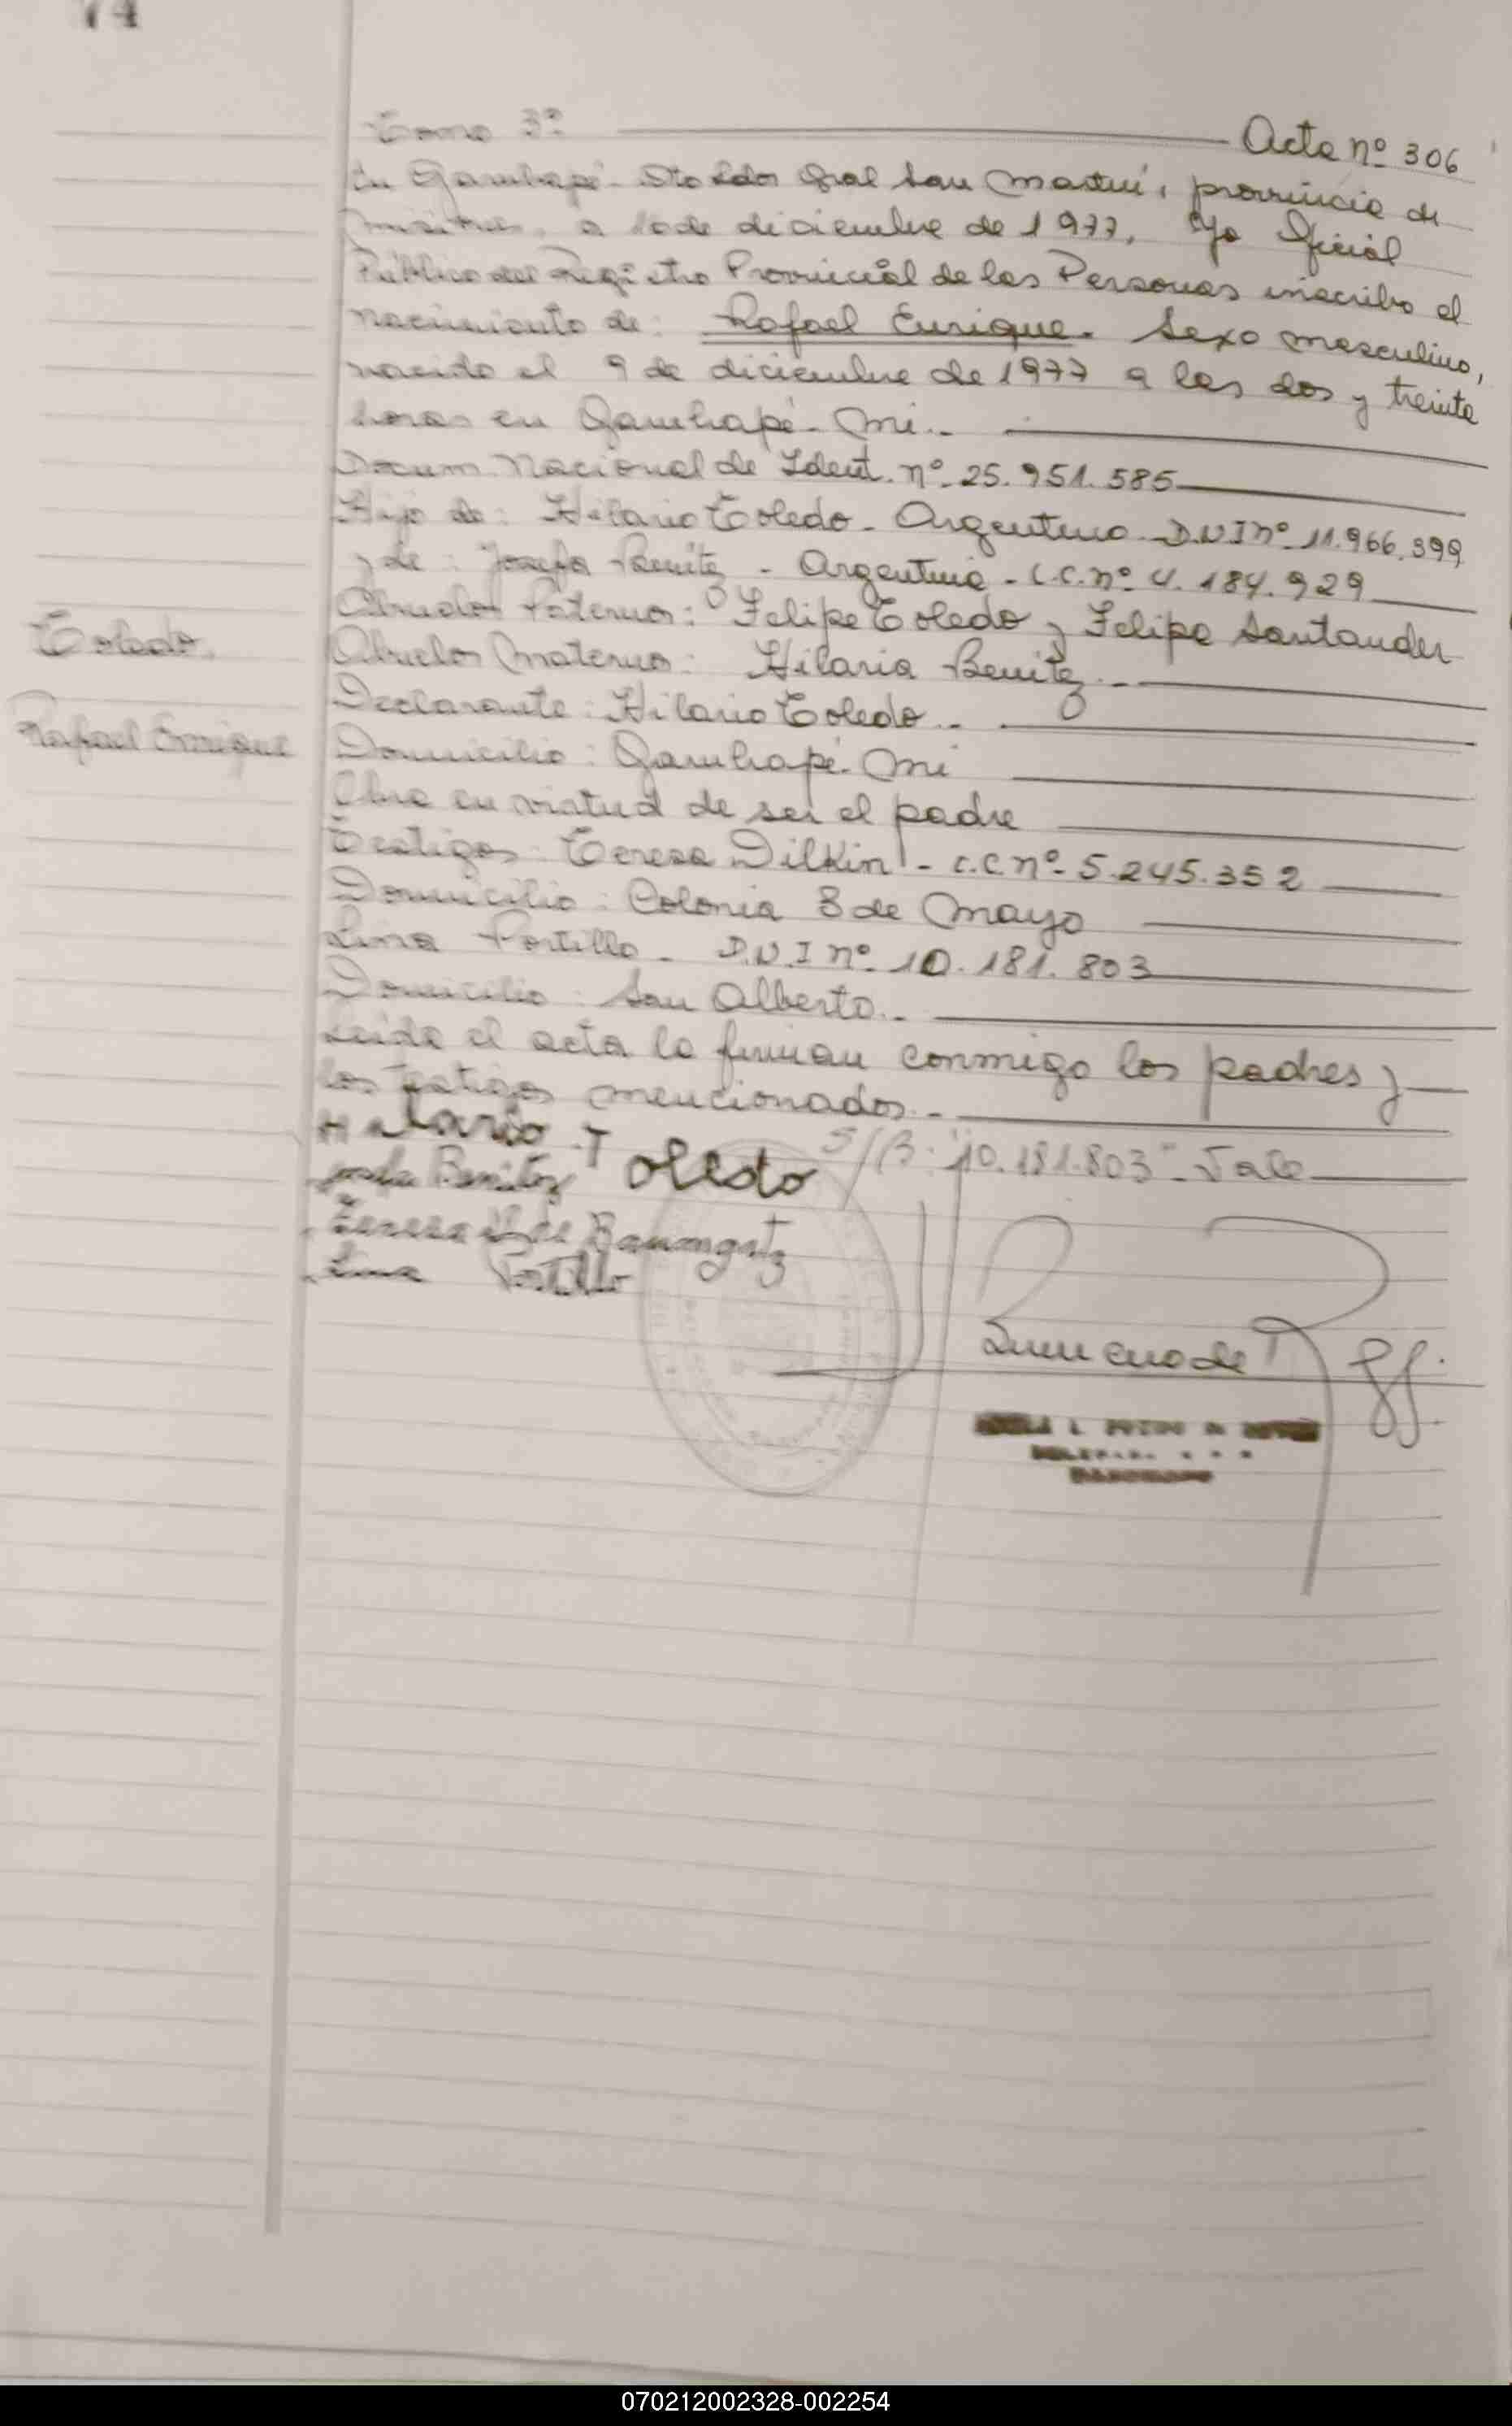 74
Tomo 3º Acta nº 306
En Garuhapé - Dto Ldor Gral San Martín, provincia de
Misiones, a 10 de diciembre de 1977, Yo Oficial
Público del Registro Provincial de las Personas inscribo el
nacimiento de: Rafael Enrique. Sexo masculino,
nacido el 9 de diciembre de 1977 a las dos y treinta
horas en Garuhapé - Mi.-
Docum. Nacional de Ident. nº 25.951.585
Hijo de: Hilario Toledo - Argentino - D.N.I nº 11.966.399
y de: Josefa Benitez - Argentina - L.C. nº 4.184.929
Abuelos Paternos: Felipe Toledo y Felipa Santander
Toledo
Abuelos Maternos: Hilaria Benitez.-
Declarante: Hilario Toledo.-
Rafael Enrique
Domicilio: Garuhapé - Mi
Obra en virtud de ser el padre
Testigos: Teresa Dilkin - L.C. nº 5.245.352
Domicilio: Colonia 3 de Mayo
Lina Portillo - D.N.I nº 10.181.803
Domicilio: San Alberto.-
Leída el acta la firman conmigo los padres y
los testigos mencionados.-
Hilario Toledo S/B: "10.181.803" - Vale
Benitez
Teresa de Baumgratz
Lina Portillo
070212002328-002254